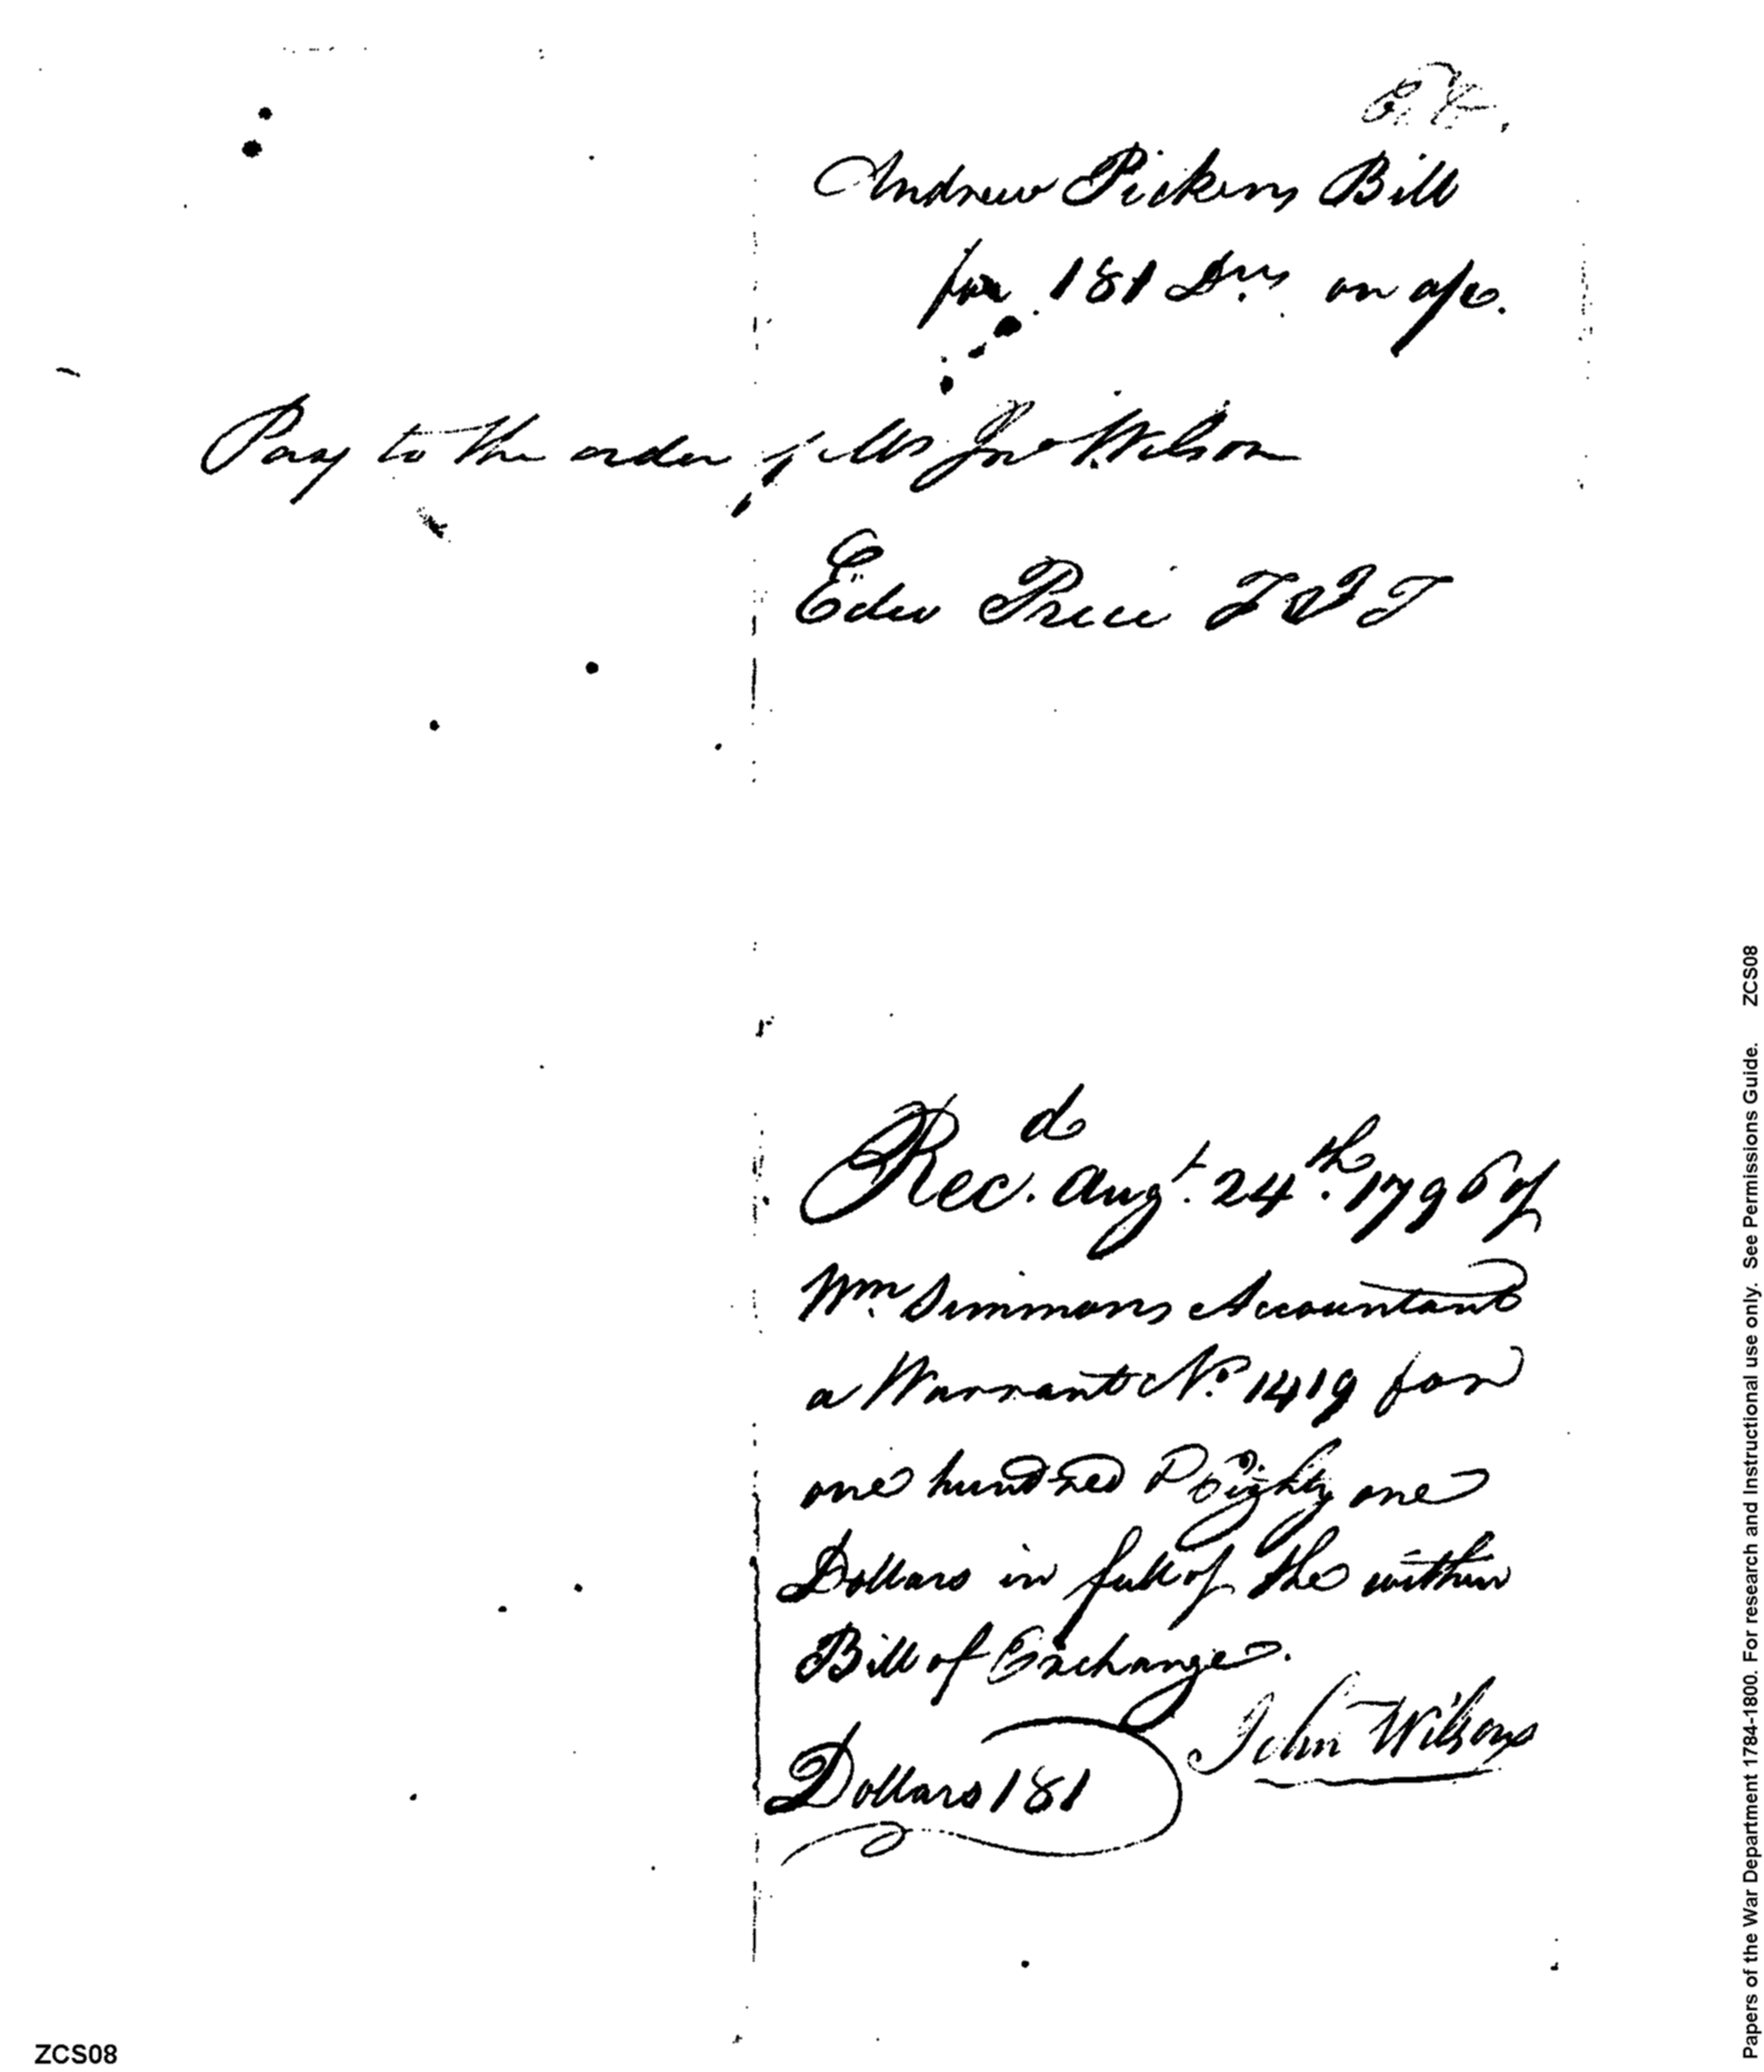 Andrew Pickens Bill
for 181 Drs. on a/c.
Pay to the order of Mr Jno Wilson
Edw Price
Recd. Augt. 24th. 1796 of
Wm. Simmons Accountant
a Warrant No. 1419 for
one hundred & Eighty one
Dollars in full of the within
Bill of Exchange.
John Wilson
Dollars 181
ZCS08
Papers of the War Department 1784-1800. For research and Instructional use only. See Permissions Guide. ZCS08